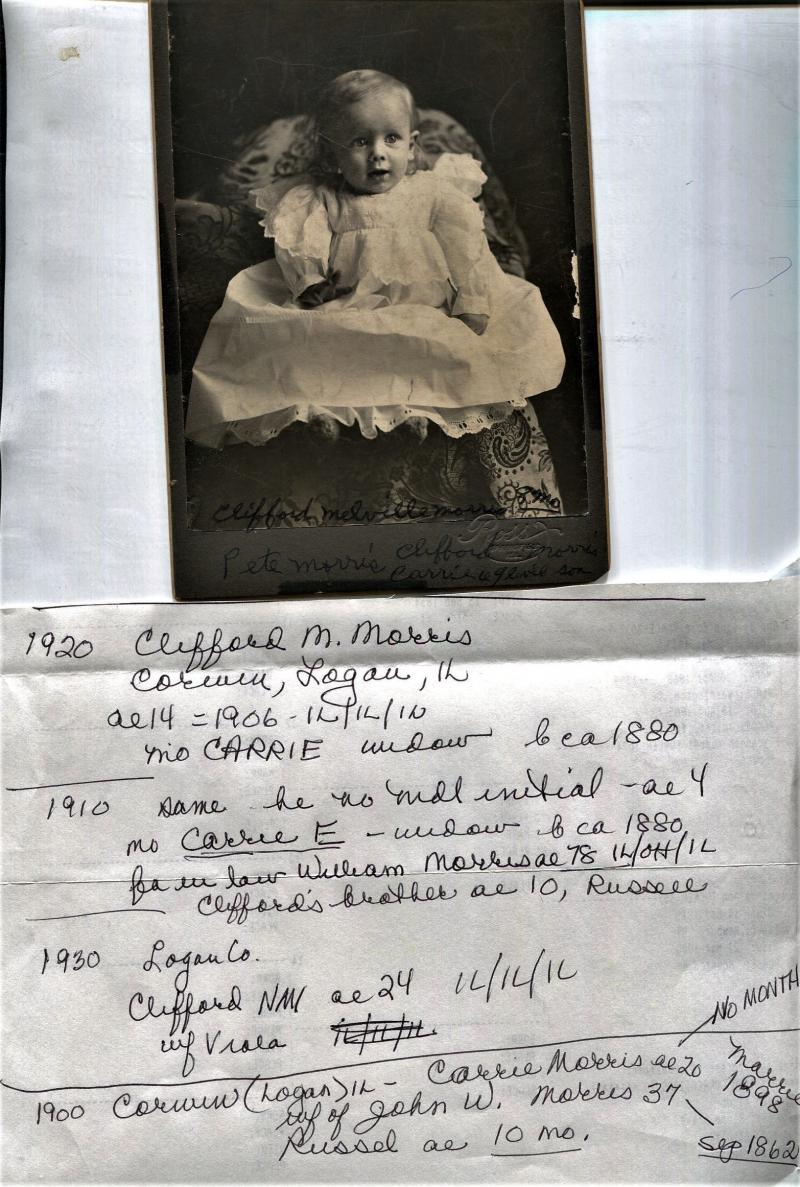 Clifford Melville Morris 8 mo
Ross
Pete Morris Clifford Morris
Carrie son
1920 Clifford M. Morris
Corwin, Logan, IL
ae 14 = 1906 - IL/IL/IL
mo CARRIE widow b ca 1880
1910 same he no mdl initial - ae 4
mo Carrie E - widow b ca 1880
fa in law William Morris ae 78 IL/OH/IL
Clifford's brother ae 10, Russell
1930 Logan Co.
Clifford NMI ae 24 IL/IL/IL
wf Viola
NO MONTH
1900 Corwin (Logan) IL - Carrie Morris ae 20
Married 1898
wf of John W. Morris 37
Sep 1862
Russel ae 10 mo.